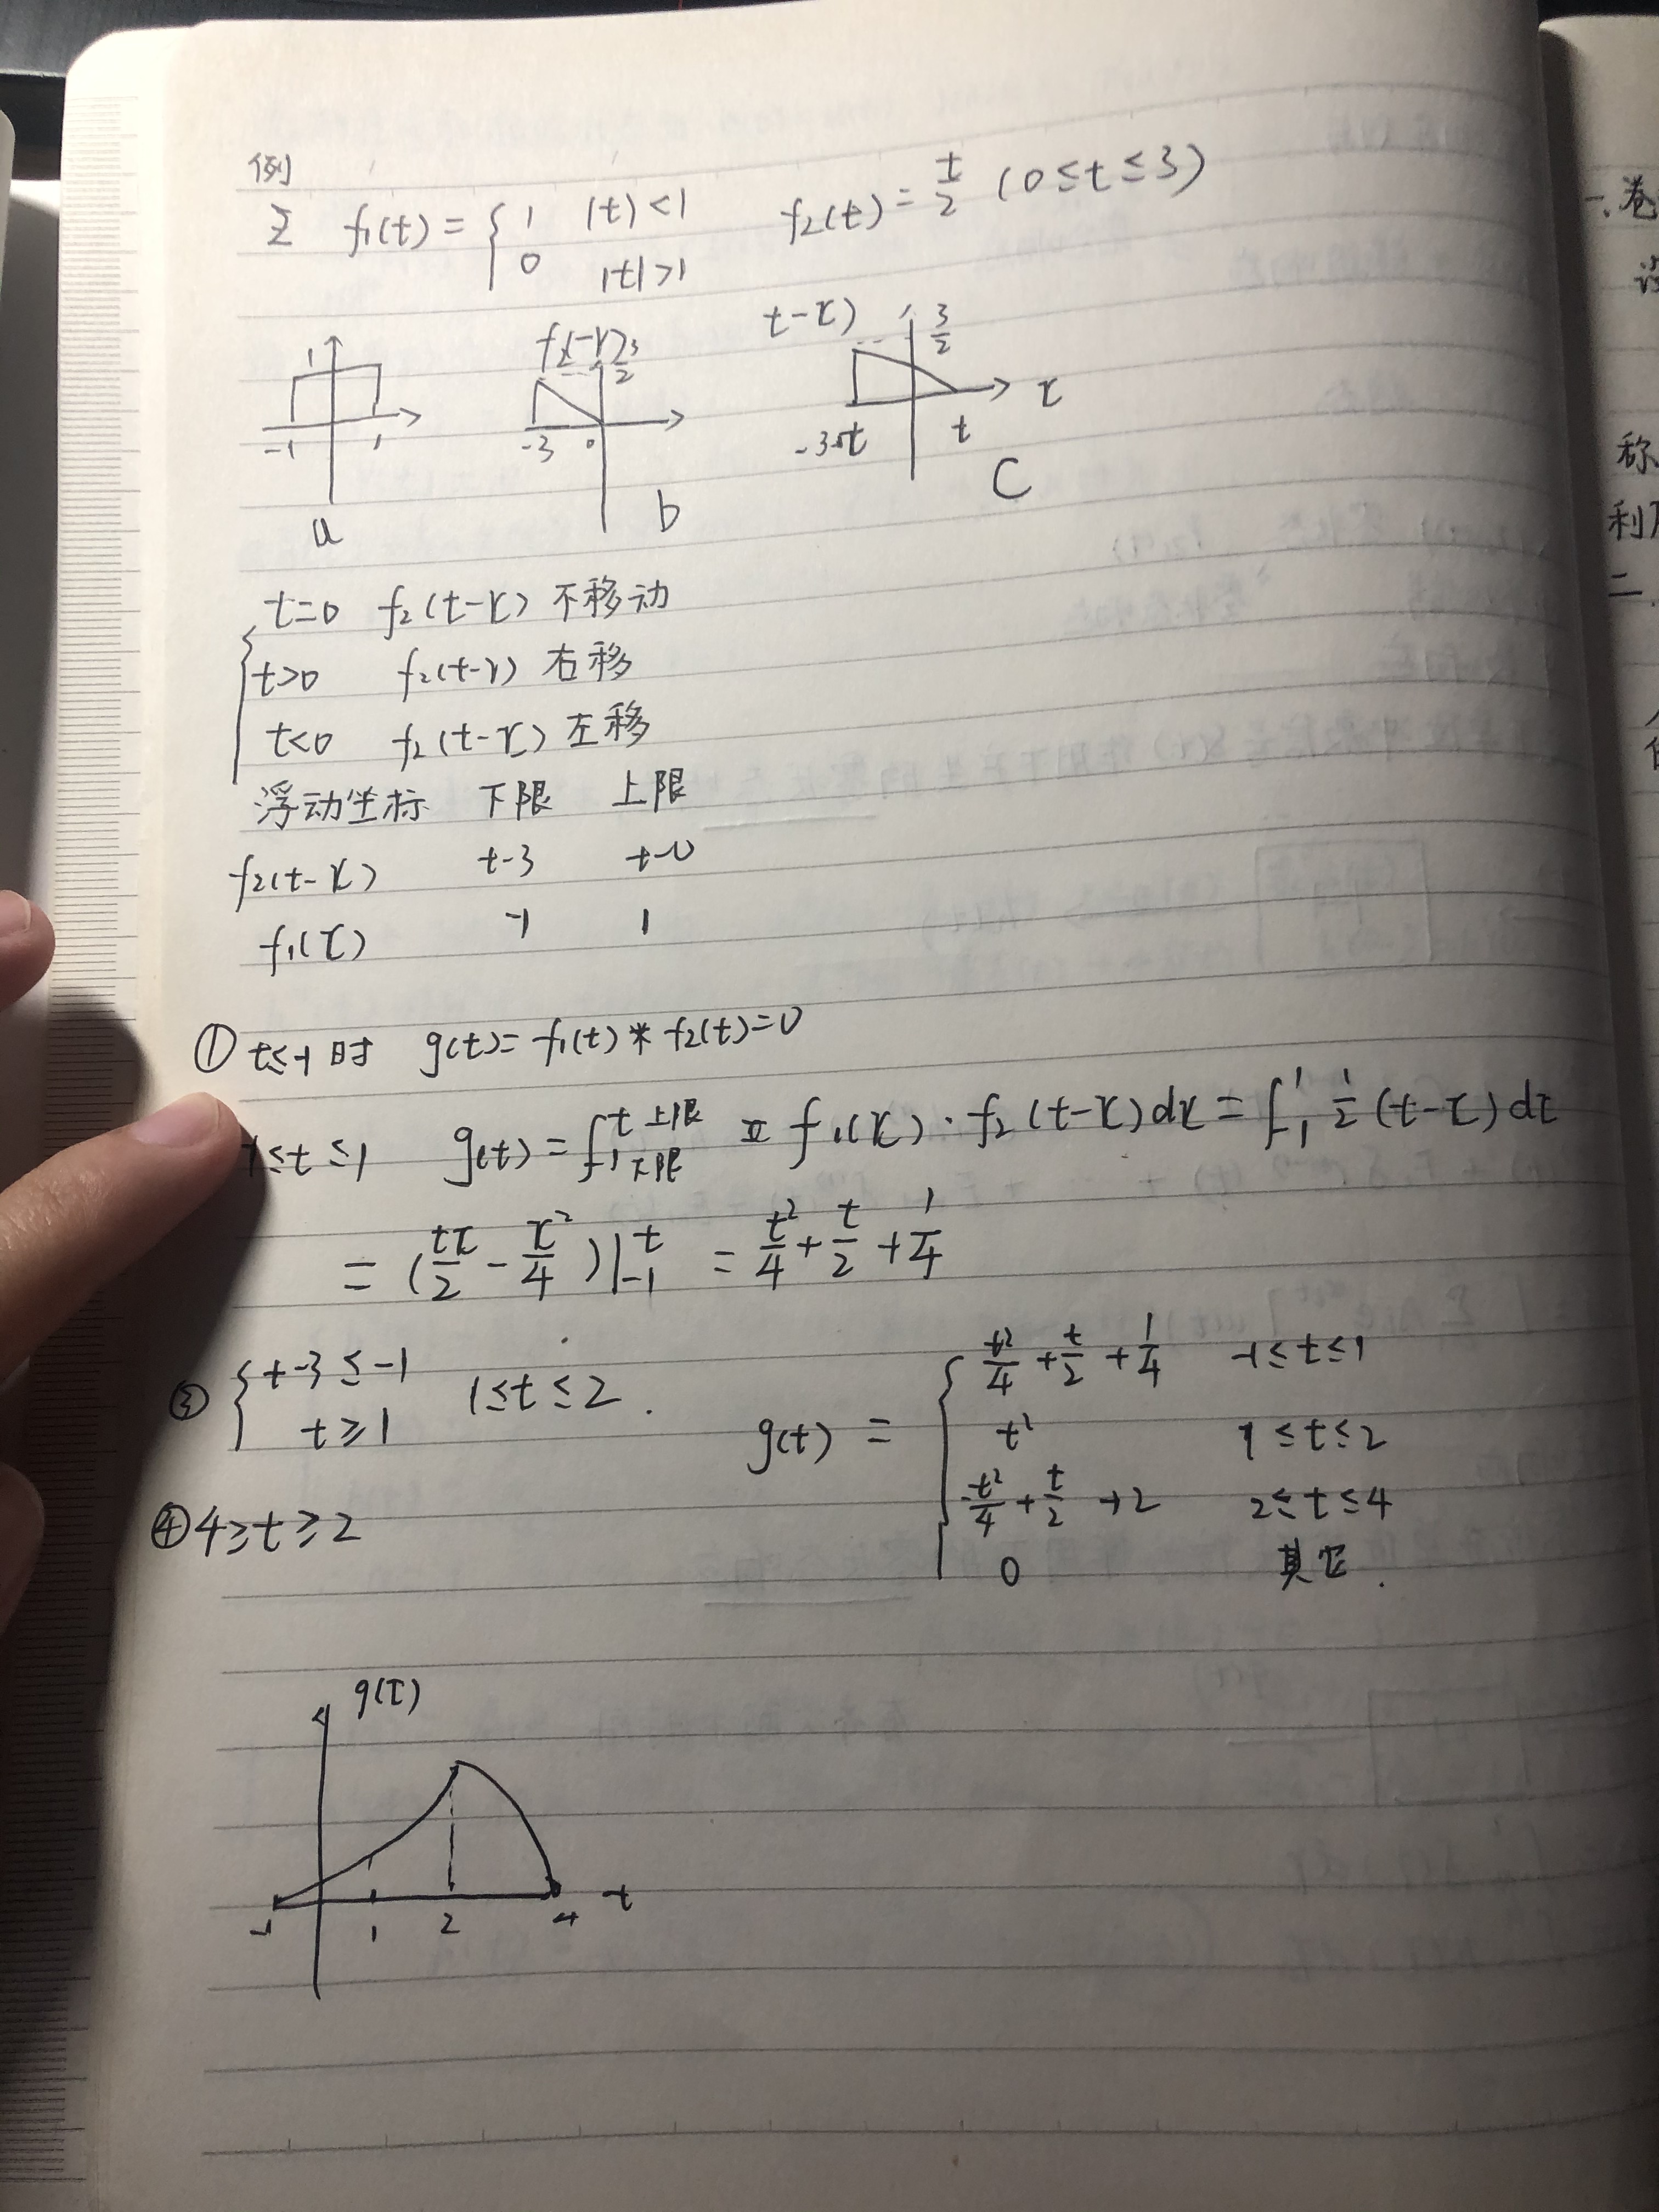 例
Σ f₁(t) = { 1 |t|<1 f₂(t) = t/2 (0≤t≤3)
0 |t|>1
1 f₂(-τ) 3/2 t-τ) 3/2
-1 1 -3 0 -3+t t τ
a b C
t=0 f₂(t-τ) 不移动
t>0 f₂(t-τ) 右移
t<0 f₂(t-τ) 左移
浮动坐标 下限 上限
f₂(t-τ) t-3 t-0
f₁(τ) -1 1
① t≤-1时 g(t)= f₁(t) * f₂(t)=0
1≤t≤1 g(t)=∫₋₁下限^t 上限 f₁(τ)·f₂(t-τ)dτ = ∫₋₁^1 1/2 (t-τ)dτ
= (tτ/2 - τ²/4)|₋₁^t = t²/4 + t/2 + 1/4
③ { t-3≤-1 1≤t≤2.
t≥1
g(t) = { t²/4 + t/2 + 1/4 -1≤t≤1
t² 1≤t≤2
-t²/4 + t/2 +2 2≤t≤4
0 其它.
④ 4≥t≥2
g(τ)
-1 1 2 4 t
一.卷
称
利用
二.